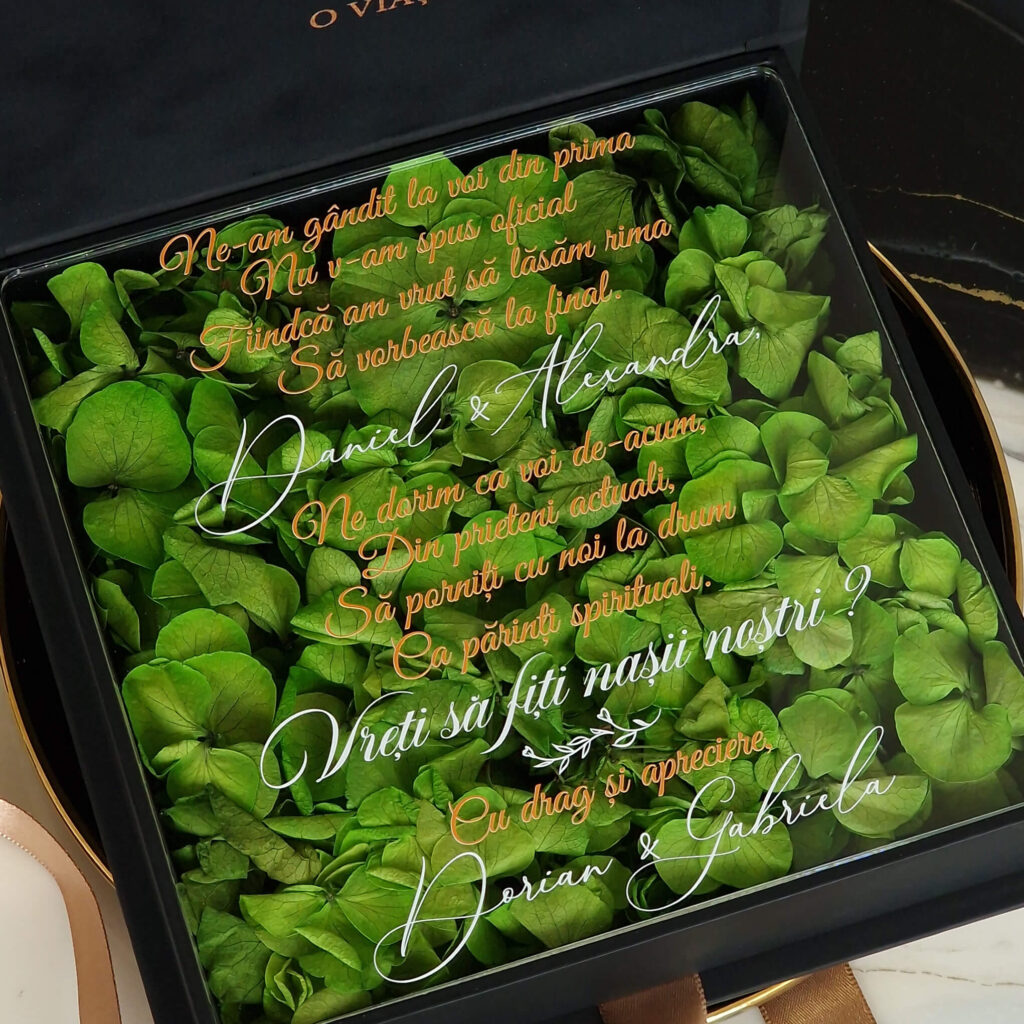 O
Ne-am gândit la voi din prima
Nu v-am spus oficial
Fiindcă am vrut să lăsăm rima
Să vorbească la final.
Daniel & Alexandra,
Ne dorim ca voi de-acum,
Din prieteni actuali,
Să porniți cu noi la drum
Ca părinți spirituali.
Vreți să fiți nașii noștri ?
Cu drag și apreciere,
Dorian & Gabriela